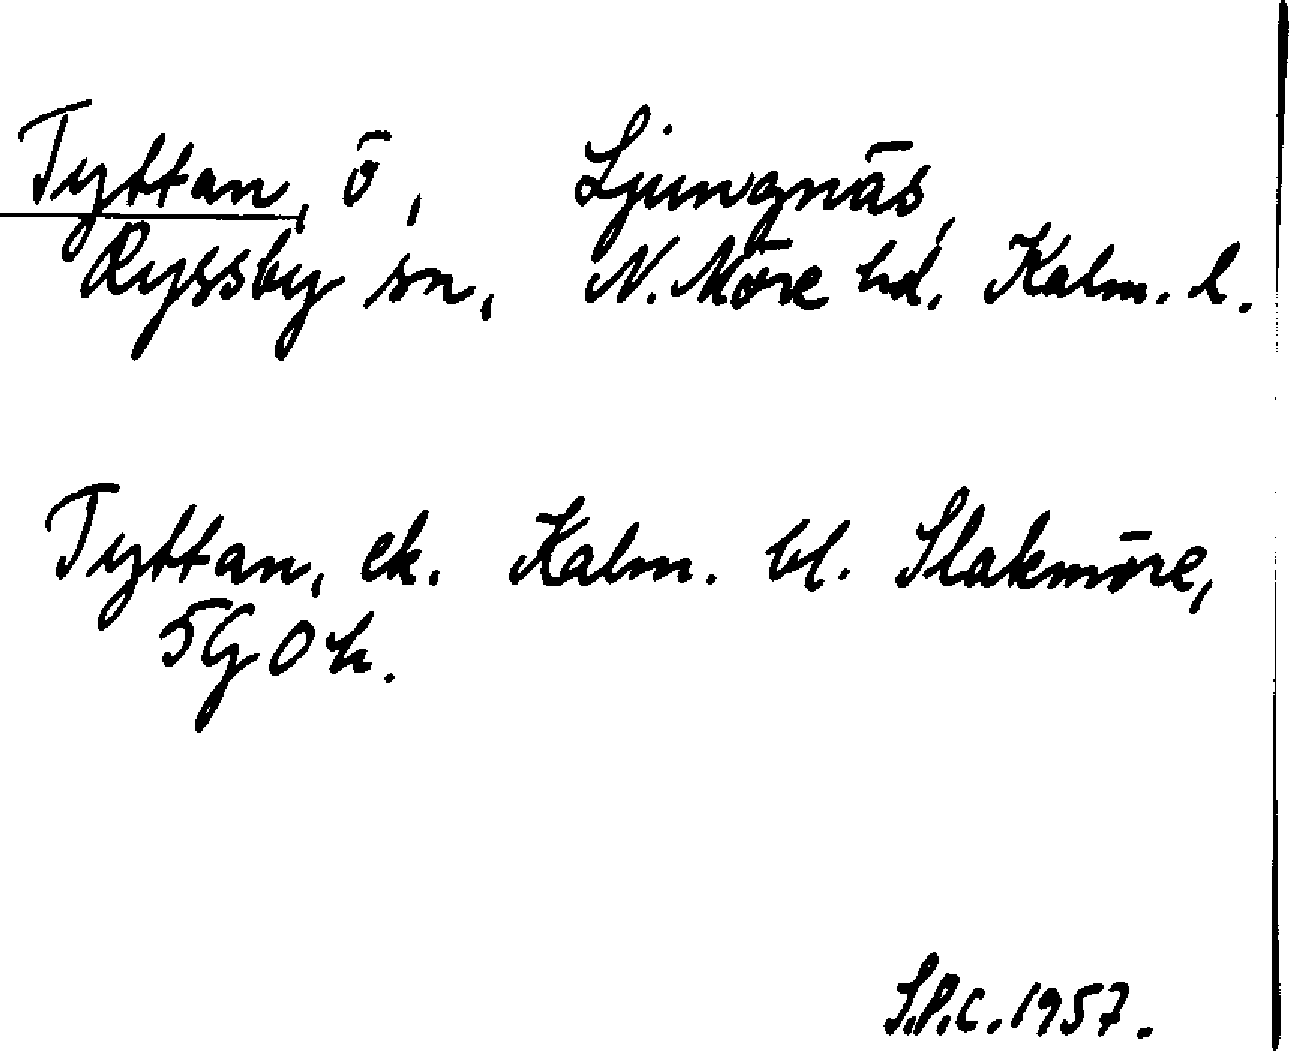 Tyttan, ö, Ljungnäs,
Ryssby sn, N. Möre hd, Kalm. l.
Tyttan, ek. Kalm. bl. Slakmöre,
5G0h.
S.P.C. 1957.